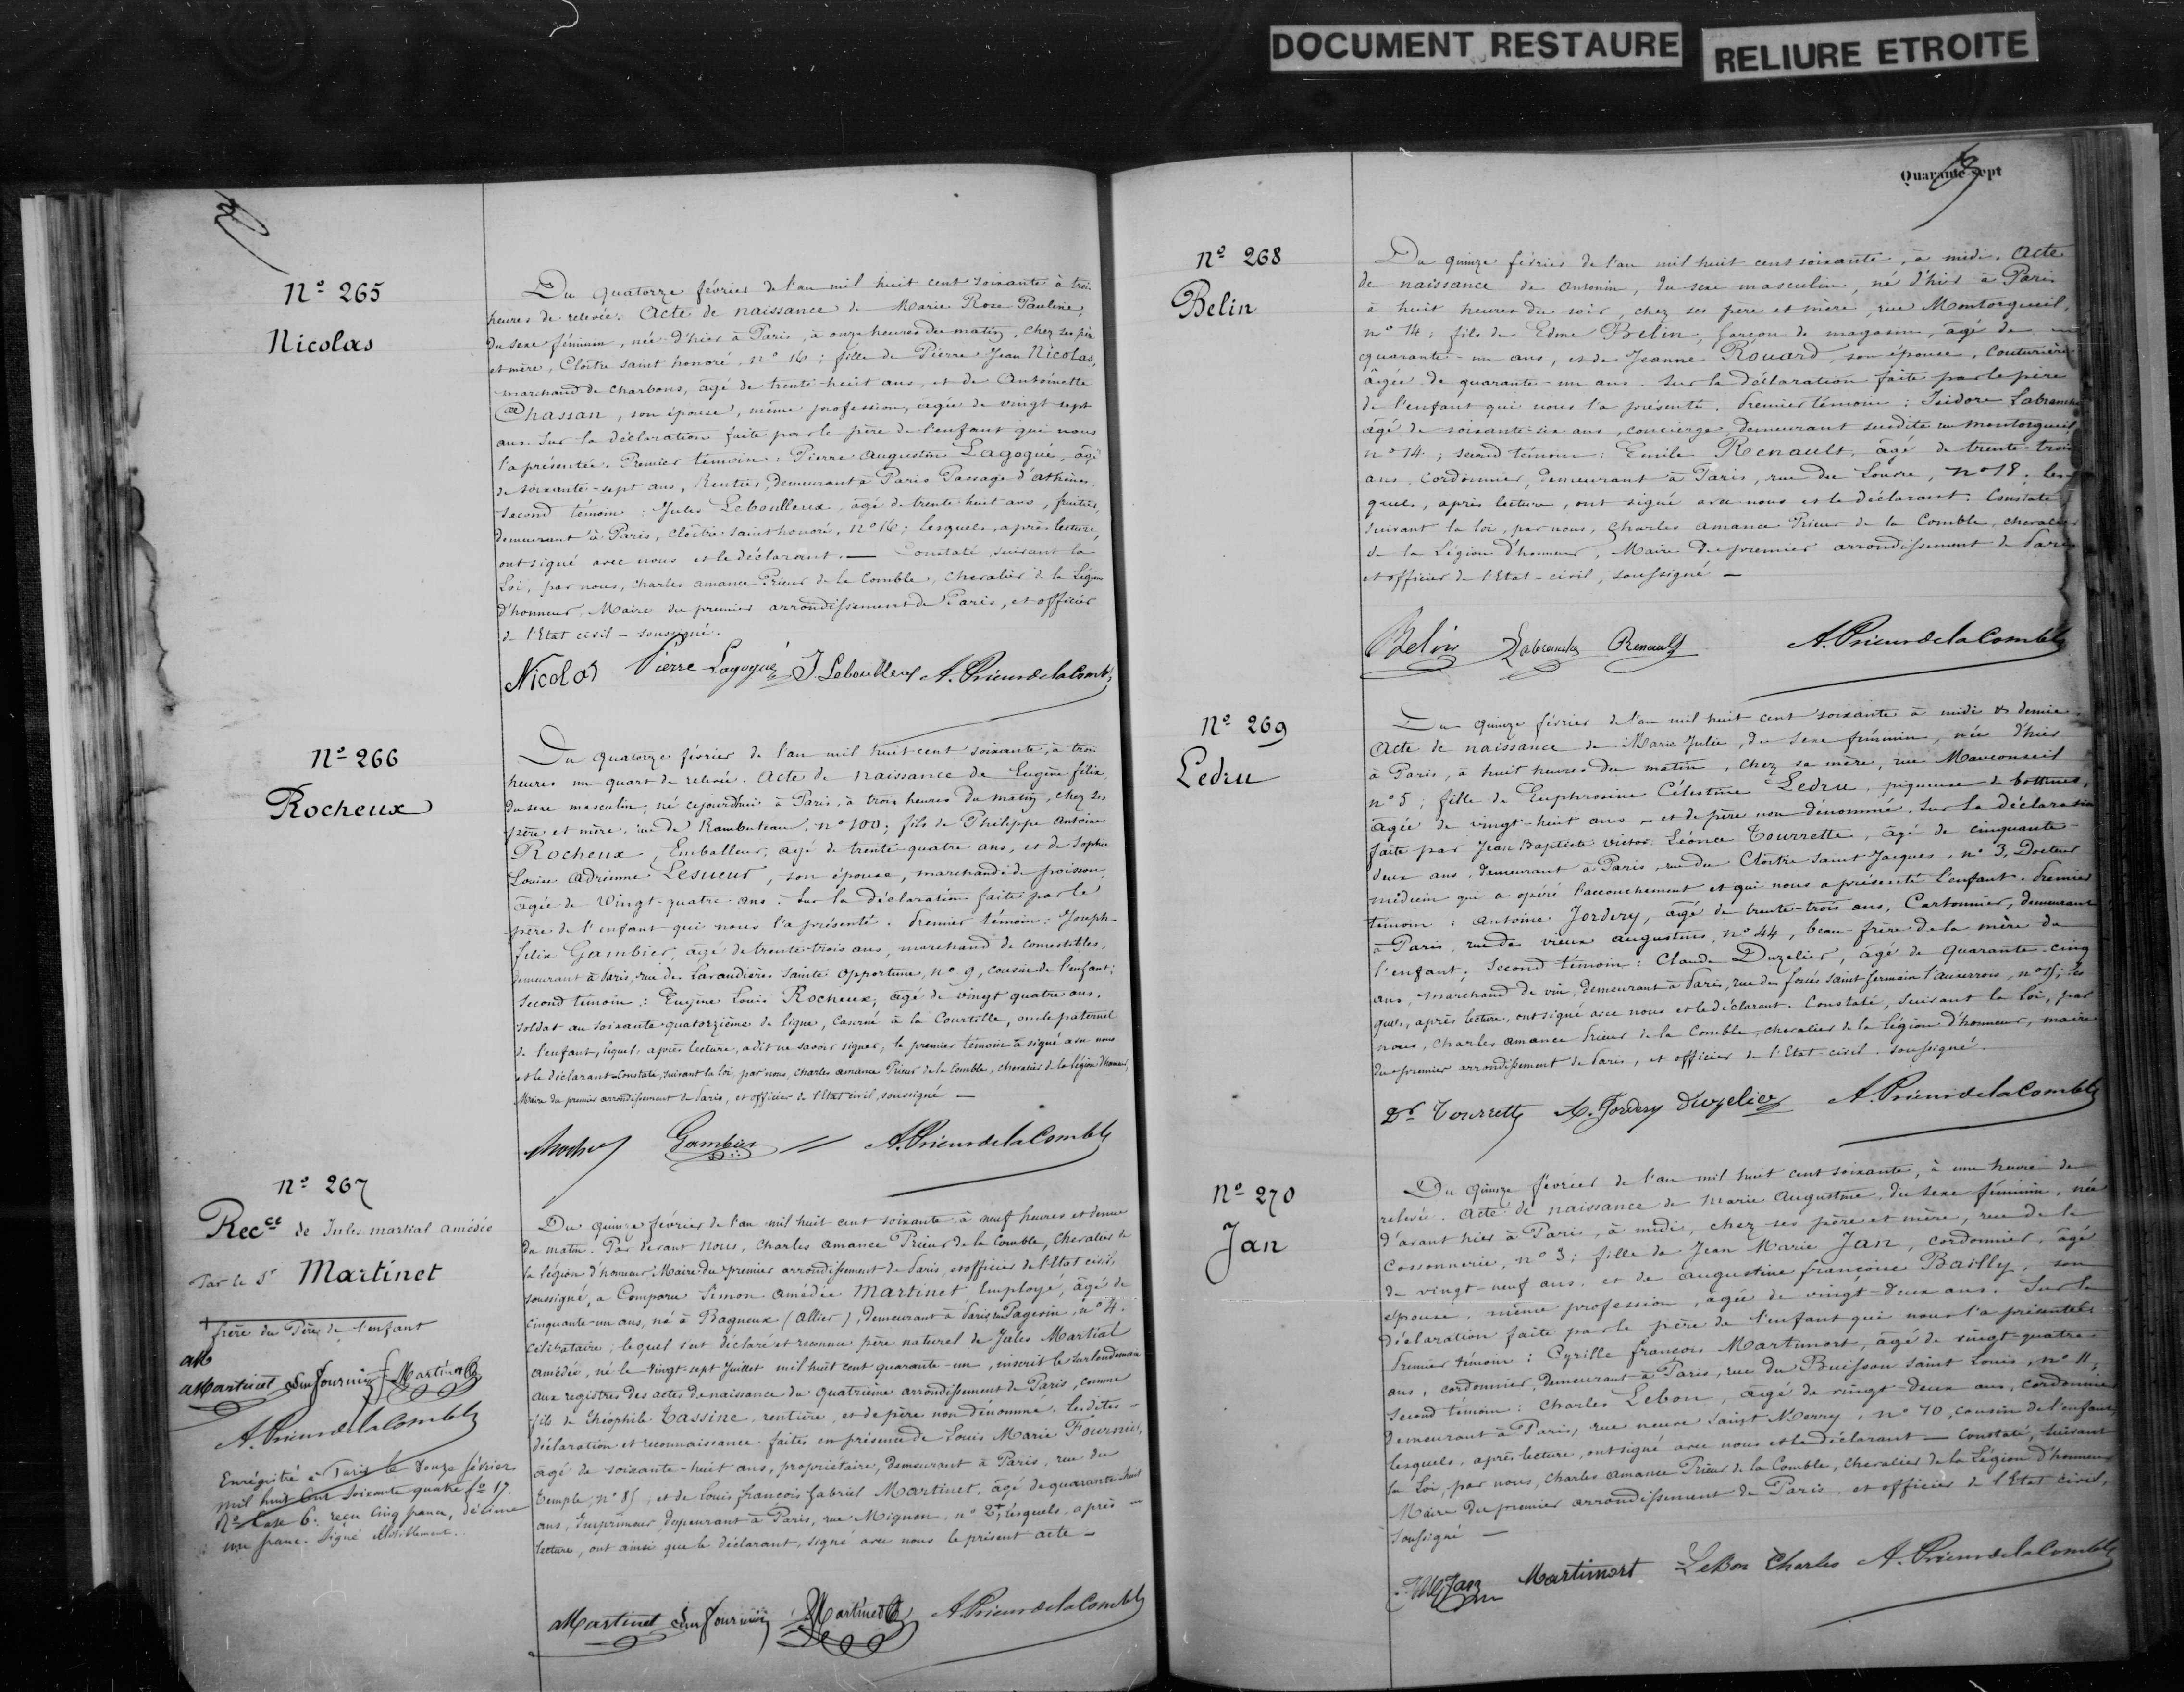 DOCUMENT RESTAURE
RELIURE ETROITE
Nº 265
Nicolas
Du quatorze février de l'an mil huit cent soixante à trois
heures de relevée. Acte de naissance de Marie Rose Pauline,
du sexe féminin, née d'hier à Paris, à onze heures du matin, chez ses père
et mère, Cloître saint honoré, nº 16; fille de Pierre Jean Nicolas,
marchand de charbons, âgé de trente huit ans, et de Antoinette
Chassan, son épouse, même profession, âgée de vingt sept
ans. Sur la déclaration faite par le père de l'enfant qui nous
l'a présentée. Premier témoin: Pierre Augustin Lagogué, âgé
de soixante-sept ans, Rentier, demeurant à Paris Passage d'athènes,
second témoin: Jules Leboulleux, âgé de trente huit ans, fruitier,
demeurant à Paris, cloître saint honoré, nº 16; lesquels, après lecture,
ont signé avec nous et le déclarant. — Constaté suivant la
Loi, par nous, charles amance Prieur de la Comble, chevalier de la Légion
d'honneur, Maire du premier arrondissement de Paris, et officier
de l'Etat civil - soussigné.
Nicolas Pierre Lagogué J. Leboulleux A. Prieur de la Comble
Nº 266
Rocheux
Du quatorze février de l'an mil huit cent soixante, à trois
heures un quart de relevée. Acte de naissance de Eugène félix,
du sexe masculin, né cejourd'hui à Paris, à trois heures du matin, chez ses
père et mère, rue de Rambuteau, nº 100; fils de Philippe Antoine
Rocheux, Emballeur, âgé de trente quatre ans, et de Sophie
Louise Adrienne Lesueur, son épouse, marchande de poisson,
âgée de vingt-quatre ans. Sur la déclaration faite par le
père de l'enfant qui nous l'a présenté. Premier témoin: Joseph
félix Gambier, âgé de trente-trois ans, marchand de comestibles,
demeurant à Paris, rue des Lavandières Sainte Opportune, nº 9, cousin de l'enfant;
second témoin: Eugène Louis Rocheux, âgé de vingt quatre ans,
soldat au soixante quatorzième de ligne, Caserné à la Courtille, oncle paternel
de l'enfant, lequel, après lecture, a dit ne savoir signer, le premier témoin a signé avec nous
et le déclarant. Constaté, suivant la loi, par nous, charles amance Prieur de la Comble, chevalier de la légion d'honneur,
Maire du premier arrondissement de Paris, et officier de l'Etat civil, soussigné —
Gambier A. Prieur de la Comble
Nº 267
Recce de Jules martial amédée
Par le Sr Martinet
frère du Père de l'enfant
aM
aMartinet Fournier Martinet
A. Prieur de la Comble
Enregistré à Paris le douze février
mil huit cent soixante quatre fº 17.
Nº Case 6. reçu cinq francs, décime
un franc. Signé illisiblement.
Du quinze février de l'an mil huit cent soixante à neuf heures et demie
du matin. Par devant nous, Charles amance Prieur de la Comble, Chevalier de
la légion d'honneur Maire du premier arrondissement de Paris, et officier de l'Etat civil,
soussigné, a Comparu Simon amédée Martinet Employé, âgé de
cinquante-un ans, né à Bagneux (Allier), demeurant à Paris, rue Pagevin, nº 4.
célibataire; lequel s'est déclaré et reconnu père naturel de Jules Martial
amédée, né le vingt-sept Juillet mil huit cent quarante-un, inscrit le surlendemain
aux registres des actes de naissance du quatrième arrondissement de Paris, comme
fils de théophile Cassine, rentière, et de père non dénommé. lesdites
déclaration et reconnaissance faites en présence de Louis Marie Fournier,
âgé de soixante-huit ans, propriétaire, demeurant à Paris, rue du
Temple, nº 85, et de Louis françois Gabriel Martinet, âgé de quarante-huit
ans, Imprimeur, demeurant à Paris, rue Mignon, nº 2, lesquels, après
lecture, ont ainsi que le déclarant, signé avec nous le présent acte -
aMartinet Fournier Martinet A. Prieur de la Comble
Quarante-sept
Nº 268
Belin
Du quinze février de l'an mil huit cent soixante, à midi. Acte
de naissance de Antonin, du sexe masculin, né d'hier à Paris
à huit heures du soir, chez ses père et mère, rue Montorgueil,
nº 14; fils de Edme Belin, garçon de magasin, âgé de
quarante-un ans, et de Jeanne Rouard, son épouse, Couturière
âgée de quarante-un ans. Sur la déclaration faite par le père
de l'enfant qui nous l'a présenté. Premier témoin: Isidore Labranche
âgé de soixante-six ans, concierge, demeurant susdite rue Montorgueil
nº 14; second témoin: Emile Renault, âgé de trente-trois
ans, cordonnier, demeurant à Paris, rue du Louvre, Nº 18. les
quels, après lecture, ont signé avec nous et le déclarant. Constaté
suivant la loi, par nous, Charles amance Prieur de la Comble, chevalier
de la Légion d'honneur, Maire du premier arrondissement de Paris
et officier de l'Etat-civil, soussigné —
Belin Labranche Renault A. Prieur de la Comble
Nº 269
Ledru
Du quinze février de l'an mil huit cent soixante à midi & demie.
Acte de naissance de Marie Julie, du sexe féminin, née d'hier
à Paris, à huit heures du matin, chez sa mère, rue Mauconseil
nº 5; fille de Euphrosine Célestine Ledru, piqueuse de bottines,
âgée de vingt-huit ans - et de père non dénommé. Sur la déclaration
faite par Jean Baptiste victor Léonce Tourrette, âgé de cinquante-
deux ans, demeurant à Paris, rue du Cloître Saint Jacques, nº 3, Docteur
médecin qui a opéré l'accouchement et qui nous a présenté l'enfant. Premier
témoin: Antoine Jordery, âgé de trente-trois ans, Cartonnier, demeurant
à Paris, rue des vieux augustins, nº 44, beau-frère de la mère de
l'enfant; Second témoin: Claude Duzelier, âgé de quarante-cinq
ans, marchand de vin, demeurant à Paris, rue des fossés saint Germain l'auxerrois, nº 15; les
quels, après lecture, ont signé avec nous et le déclarant. Constaté, suivant la loi, par
nous, Charles amance Prieur de la Comble, chevalier de la légion d'honneur, maire
du premier arrondissement de Paris, et officier de l'Etat civil. soussigné.
Dr Tourrette A. Jordery Duzelier A. Prieur de la Comble
Nº 270
Jan
Du quinze février de l'an mil huit cent soixante, à une heure de
relevée. Acte de naissance de Marie Augustine, du sexe féminin, née
d'avant hier à Paris, à midi, chez ses père et mère, rue de la
Cossonnerie, nº 3; fille de Jean Marie Jan, cordonnier, âgé
de vingt-neuf ans, et de augustine françoise Bailly, son
épouse, même profession, âgée de vingt-deux ans. Sur la
déclaration faite par le père de l'enfant qui nous l'a présentée.
Premier témoin: Cyrille françois Martimort, âgé de vingt-quatre
ans, cordonnier, demeurant à Paris, rue du Buisson saint Louis, nº 11,
second témoin: Charles Lebon, âgé de vingt-deux ans, cordonnier
demeurant à Paris, rue neuve Saint Merry, nº 10, cousin de l'enfant,
lesquels, après lecture, ont signé avec nous et le déclarant — Constaté, suivant
la Loi, par nous, Charles amance Prieur de la Comble, chevalier de la Légion d'honneur
Maire du premier arrondissement de Paris, et officier de l'Etat civil,
soussigné —
JM Jan Martimort LeBon Charles A. Prieur de la Comble